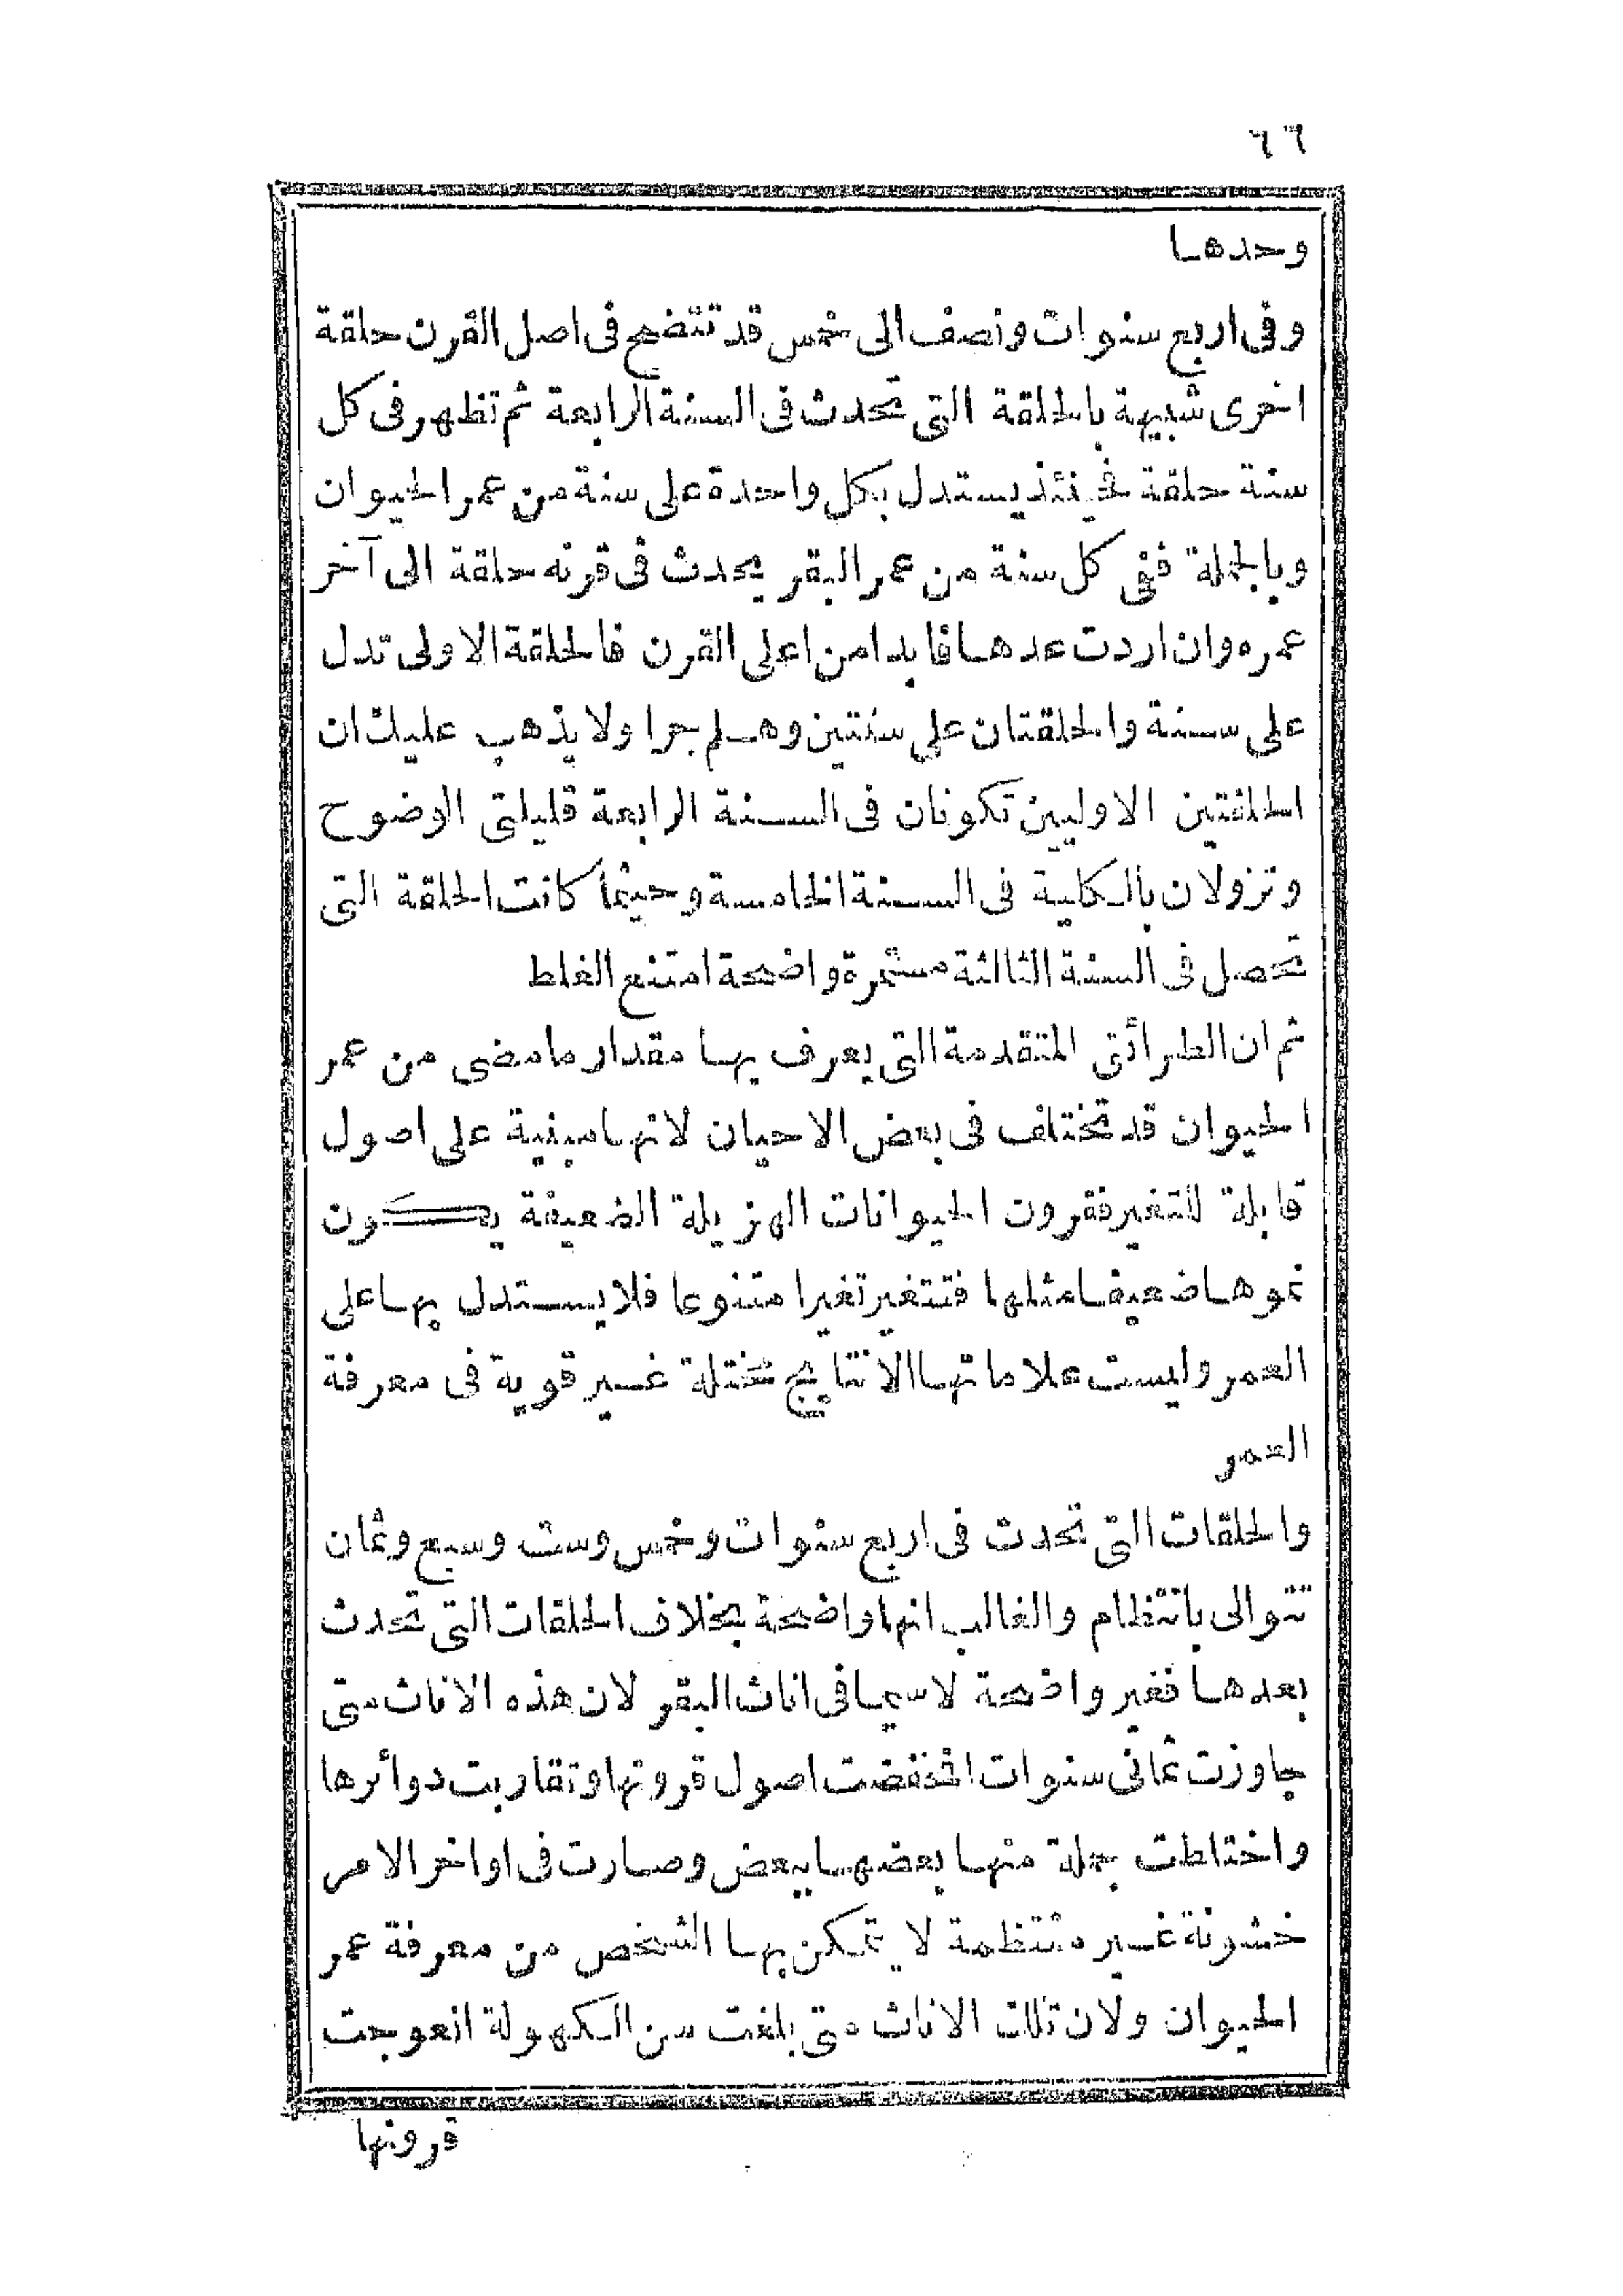 ٦٦
وحدها
وفى اربع سنوات ونصف الى خمس قد تتضح فى اصل القرن حلقة
اخرى شبيهة بالحلقة التى تحدث فى السنة الرابعة ثم تظهر فى كل
سنة حلقة فحينئذ يستدل بكل واحدة على سنة من عمر الحيوان
وبالجملة ففى كل سنة من عمر البقر يحدث فى قرنه حلقة الى آخر
عمره وان اردت عدها فابدا من اعلى القرن فالحلقة الاولى تدل
على سنة والحلقتان على سنتين وهلم جرا ولا يذهب عليك ان
الحلقتين الاوليين تكونان فى السنة الرابعة قليلتى الوضوح
وتزولان بالكلية فى السنة الخامسة وحيثما كانت الحلقة التى
تحصل فى السنة الثالثة مستمرة واضحة امتنع الغلط
ثم ان الطرائق المتقدمة التى يعرف بها مقدار ما مضى من عمر
الحيوان قد تختلف فى بعض الاحيان لانها مبنية على اصول
قابلة للتغير فقرون الحيوانات الهزيلة الضعيفة يكون
نموها ضعيفا مثلها فتتغير تغيرا متنوعا فلا يستدل بها على
العمر وليست علاماتها الا نتايج مختلة غير قوية فى معرفة
العمر
والحلقات التى تحدث فى اربع سنوات وخمس وست وسبع وثمان
تتوالى بانتظام والغالب انها واضحة بخلاف الحلقات التى تحدث
بعدها فغير واضحة لا سيما فى اناث البقر لان هذه الاناث متى
جاوزت ثمانى سنوات انخفضت اصول قرونها وتقاربت دوائرها
واختلطت جملة منها بعضها ببعض وصارت فى اواخر الامر
خشونة غير منتظمة لا يتمكن بها الشخص من معرفة عمر
الحيوان ولان تلك الاناث متى بلغت سن الكهولة انعوجت
قرونها